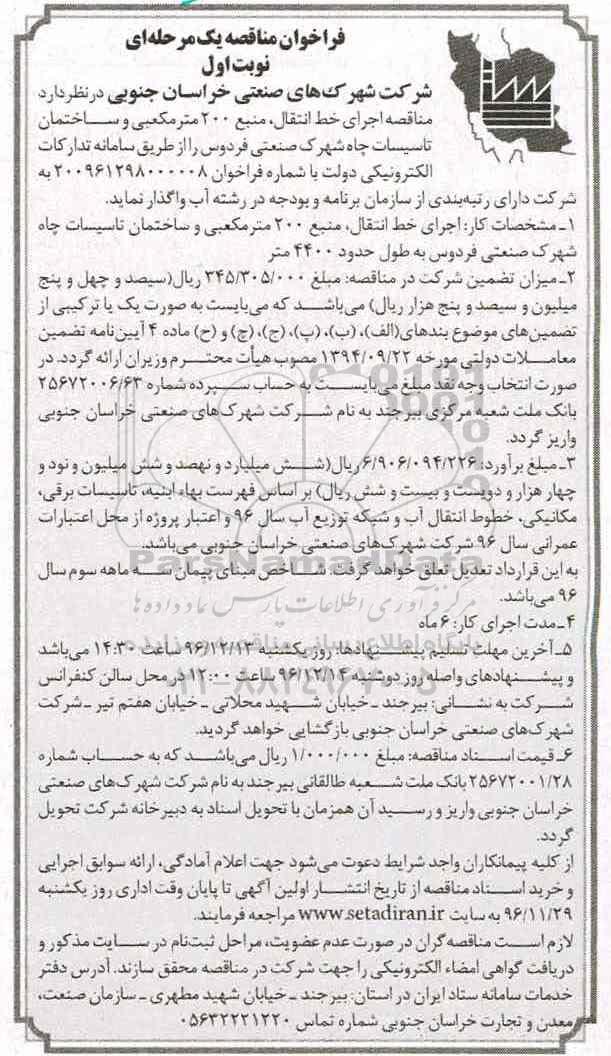 فراخوان مناقصه یک مرحله‌ای
نوبت اول
شرکت شهرک‌های صنعتی خراسان جنوبی در نظر دارد
مناقصه اجرای خط انتقال، منبع ۲۰۰ مترمکعبی و ساختمان
تاسیسات چاه شهرک صنعتی فردوس را از طریق سامانه تدارکات
الکترونیکی دولت با شماره فراخوان ۲۰۰۹۶۱۲۹۸۰۰۰۰۰۸ به
شرکت دارای رتبه‌بندی از سازمان برنامه و بودجه در رشته آب واگذار نماید.
۱ـ مشخصات کار: اجرای خط انتقال، منبع ۲۰۰ مترمکعبی و ساختمان تاسیسات چاه
شهرک صنعتی فردوس به طول حدود ۴۴۰۰ متر
۲ـ میزان تضمین شرکت در مناقصه: مبلغ ۳۴۵/۳۰۵/۰۰۰ ریال(سیصد و چهل و پنج
میلیون و سیصد و پنج هزار ریال) می‌باشد که می‌بایست به صورت یک یا ترکیبی از
تضمین‌های موضوع بندهای(الف)، (ب)، (پ)، (ج)، (چ) و (ح) ماده ۴ آیین‌نامه تضمین
معاملات دولتی مورخه ۱۳۹۴/۰۹/۲۲ مصوب هیأت محترم وزیران ارائه گردد. در
صورت انتخاب وجه نقد مبلغ می‌بایست به حساب سپرده شماره ۲۵۶۷۲۰۰۶/۶۳
بانک ملت شعبه مرکزی بیرجند به نام شرکت شهرک‌های صنعتی خراسان جنوبی
واریز گردد.
۳ـ مبلغ برآورد: ۶/۹۰۶/۰۹۴/۲۲۶ ریال(شش میلیارد و نهصد و شش میلیون و نود و
چهار هزار و دویست و بیست و شش ریال) بر اساس فهرست بهاء ابنیه، تاسیسات برقی،
مکانیکی، خطوط انتقال آب و شبکه توزیع آب سال ۹۶ و اعتبار پروژه از محل اعتبارات
عمرانی سال ۹۶ شرکت شهرک‌های صنعتی خراسان جنوبی می‌باشد.
به این قرارداد تعدیل تعلق خواهد گرفت. شاخص مبنای پیمان سه ماهه سوم سال
۹۶ می‌باشد.
ParsNamadData
مرکز فرآوری اطلاعات پارس نماد داده‌ها
۴ـ مدت اجرای کار: ۶ ماه
پایگاه اطلاع رسانی مناقصه و مزایده
۵ـ آخرین مهلت تسلیم پیشنهادها: روز یکشنبه ۹۶/۱۲/۱۳ ساعت ۱۴:۳۰ می‌باشد
و پیشنهادهای واصله روز دوشنبه ۹۶/۱۲/۱۴ ساعت ۱۲:۰۰ در محل سالن کنفرانس
شرکت به نشانی: بیرجند ـ خیابان شهید محلاتی ـ خیابان هفتم تیر ـ شرکت
شهرک‌های صنعتی خراسان جنوبی بازگشایی خواهد گردید.
۶ـ قیمت اسناد مناقصه: مبلغ ۱/۰۰۰/۰۰۰ ریال می‌باشد که به حساب شماره
۲۵۶۷۲۰۰۱/۲۸ بانک ملت شعبه طالقانی بیرجند به نام شرکت شهرک‌های صنعتی
خراسان جنوبی واریز و رسید آن همزمان با تحویل اسناد به دبیرخانه شرکت تحویل
گردد.
از کلیه پیمانکاران واجد شرایط دعوت می‌شود جهت اعلام آمادگی، ارائه سوابق اجرایی
و خرید اسناد مناقصه از تاریخ انتشار اولین آگهی تا پایان وقت اداری روز یکشنبه
۹۶/۱۱/۲۹ به سایت www.setadiran.ir مراجعه فرمایند.
لازم است مناقصه‌گران در صورت عدم عضویت، مراحل ثبت‌نام در سایت مذکور و
دریافت گواهی امضاء الکترونیکی را جهت شرکت در مناقصه محقق سازند. آدرس دفتر
خدمات سامانه ستاد ایران در استان: بیرجند ـ خیابان شهید مطهری ـ سازمان صنعت،
معدن و تجارت خراسان جنوبی شماره تماس ۰۵۶۳۲۲۲۱۲۲۰